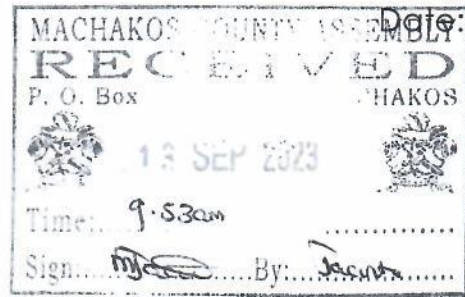 Date:
MACHAKOS COUNTY ASSEMBLY
RECEIVED
P. O. Box HAKOS
13 SEP 2023
Time: 9.53am
Sign: By: Jacinta